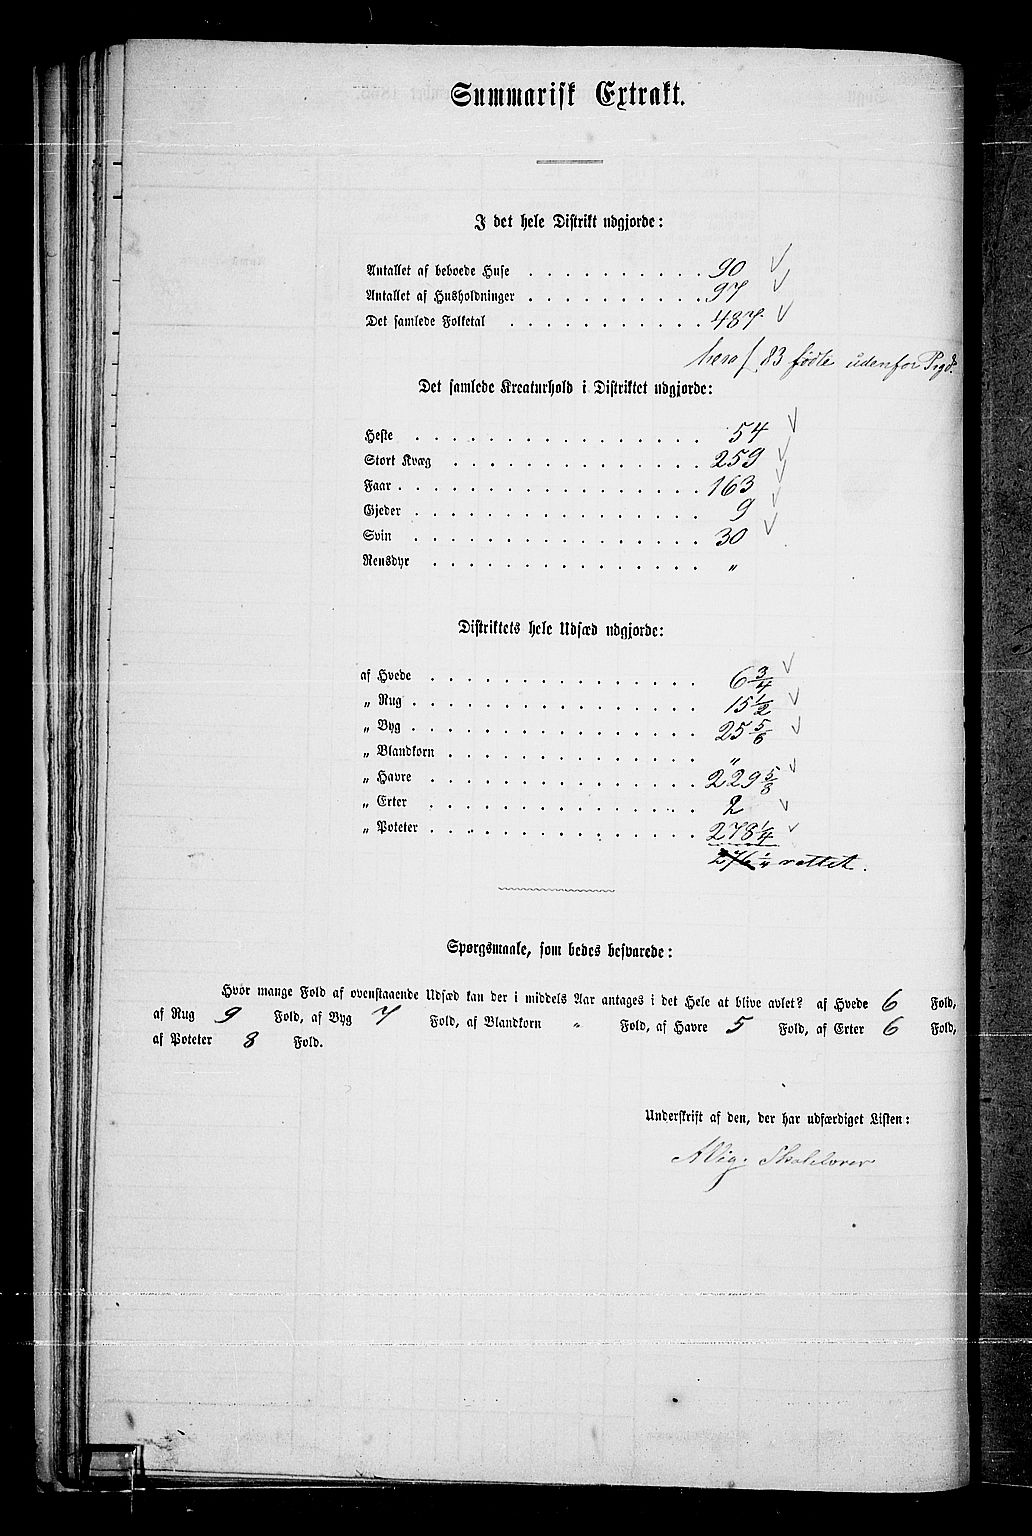 Summarisk Extrakt.
I det hele Distrikt udgjorde:
Antallet af beboede Huse . . . . . . . . . . 90
Antallet af Husholdninger . . . . . . . . . . 97
Det samlede Folketal . . . . . . . . . . . 487.
heraf 83 fødte udenfor Prgd.
Det samlede Kreaturhold i Distriktet udgjorde:
Heste . . . . . . . . . . . . . . . . 54
Stort Kvæg . . . . . . . . . . . . . . 259
Faar . . . . . . . . . . . . . . . . . 163
Gjeder . . . . . . . . . . . . . . . . 9
Svin . . . . . . . . . . . . . . . . 30
Rensdyr . . . . . . . . . . . . . . . „
Distriktets hele Udsæd udgjorde:
af Hvede . . . . . . . . . . . . . . . 6 3/4
„ Rug . . . . . . . . . . . . . . . . 15 1/2
„ Byg . . . . . . . . . . . . . . . . 25 5/6
„ Blandkorn . . . . . . . . . . . . . . „
„ Havre . . . . . . . . . . . . . . . 229 5/8
„ Erter . . . . . . . . . . . . . . . 2
„ Poteter . . . . . . . . . . . . . . . 278 1/4
276 1/4 rettet.
Spørgsmaale, som bedes besvarede:
Hvor mange Fold af ovenstaaende Udsæd kan der i middels Aar antages i det Hele at blive avlet? af Hvede 6 Fold,
af Rug 9 Fold, af Byg 7 Fold, af Blandkorn „ Fold, af Havre 5 Fold, af Erter 6 Fold,
af Poteter 8 Fold.
Underskrift af den, der har udfærdiget Listen: